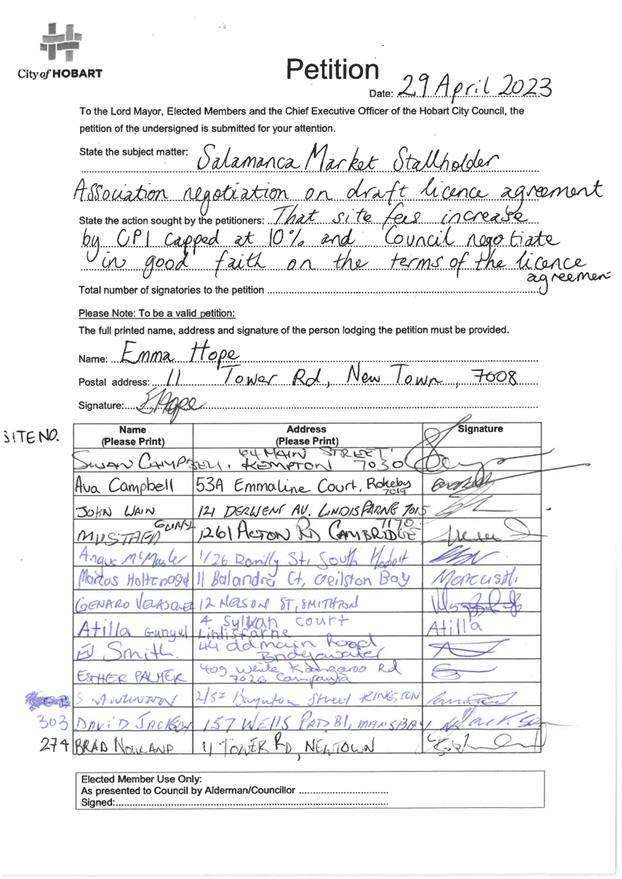 City of HOBART
Petition
Date: 29 April 2023
To the Lord Mayor, Elected Members and the Chief Executive Officer of the Hobart City Council, the
petition of the undersigned is submitted for your attention.
State the subject matter: Salamanca Market Stallholder
Association negotiation on draft licence agreement
State the action sought by the petitioners: That site fees increase
by CPI capped at 10% and Council negotiate
in good faith on the terms of the licence
agreemen
Total number of signatories to the petition
Please Note: To be a valid petition:
The full printed name, address and signature of the person lodging the petition must be provided.
Name: Emma Hope
Postal address: 11 Tower Rd, New Town, 7008
Signature: EHope
SITE NO.
Name (Please Print) Address (Please Print) Signature
SWAN CAMPBELL. 64 MAIN STREET KEMPTON 7030
Ava Campbell 53A Emmaline Court, Rokeby 7019
JOHN WAIN 121 DERWENT AV. LINDISFARNE 7015
MUSTAFA GUNY 1261 ACTON RD CAMBRIDGE 7170
Angus 1/26 Romilly St, South Hobart
Marcus 11 Balandra Ct, Geilston Bay Marcus H.
GENARO VELASQUEZ 12 NELSON ST, SMITHTON
Atilla Gunyel 4 Sylvan Court Lindisfarne Atilla
Smith. 44 old main Road
ESTHER PALMER 409 White Kangaroo Rd 7026 Campania
S 2/57 Street KINGSTON
303 DAVID JACKSON 157 WELLS Jackson
274 BRAD 11 TOWER RD, NEWTOWN
Elected Member Use Only:
As presented to Council by Alderman/Councillor
Signed: